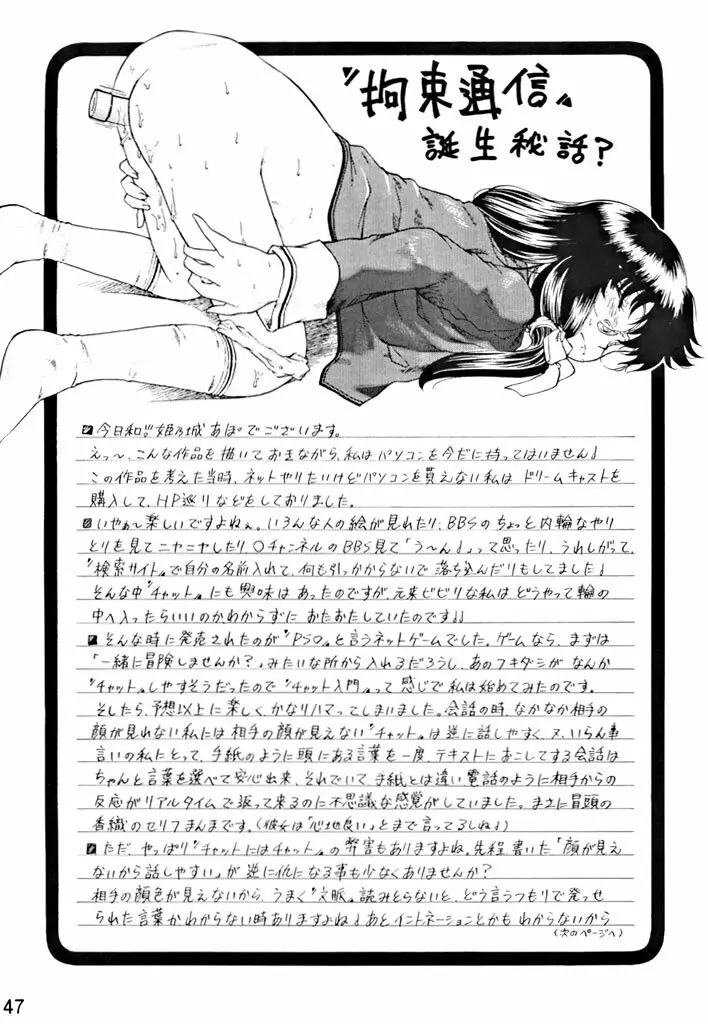 〝拘束通信〟
誕生秘話？
今日和!! 姫乃城あぽでございます。
えっ〜、こんな作品を描いておきながら、私はパソコンを今だに持ってはいません♩
この作品を考えた当時、ネットやりたいけどパソコンを買えない私はドリームキャストを
購入して、HP巡りなどをしておりました。
いやぁ〜楽しいですよねぇ。いろんな人の絵が見れたり、BBSのちょっと内輪なやり
とりを見てニヤニヤしたり、〇チャンネルのBBS見て「う〜ん♩」って思ったり、うれしがって、
〝検索サイト〟で自分の名前入れて、何も引っかからないで落ち込んだりもしてました♩
そんな中〝チャット〟にも興味はあったのですが、元来ビビリな私はどうやって輪の
中へ入ったらいいのかわからずにおたおたしていたのです♩♩
そんな時に発売されたのが〝PSO〟と言うネットゲームでした。ゲームなら、まずは
「一緒に冒険しませんか？」みたいな所から入れるだろうし、あのフキダシがなんか
〝チャット〟しやすそうだったので〝チャット入門〟って感じで私は始めてみたのです。
そしたら、予想以上に楽しく、かなりハマってしまいました。会話の時、なかなか相手の
顔が見れない私には相手の顔が見えない〝チャット〟は逆に話しやすく、又、いらん事
言いの私にとって、手紙のように頭にある言葉を一度、テキストにおこしてする会話は
ちゃんと言葉を選べて安心出来、それでいて、手紙とは違い電話のように相手からの
反応がリアルタイムで返って来るのに不思議な感覚がしていました。まさに冒頭の
香織のセリフまんまです。(彼女は「心地良い」とまで言ってるしね♩)
ただ、やっぱり〝チャットにはチャット〟の弊害もありますよね。先程書いた「顔が見え
ないから話しやすい」が逆に仇になる事も少なくありませんか？
相手の顔色が見えないから、うまく〝文脈〟読みとらないと、どう言うつもりで発っせ
られた言葉かわからない時ありますよね♩あと、イントネーションとかもわからないから
(次のページへ)
47